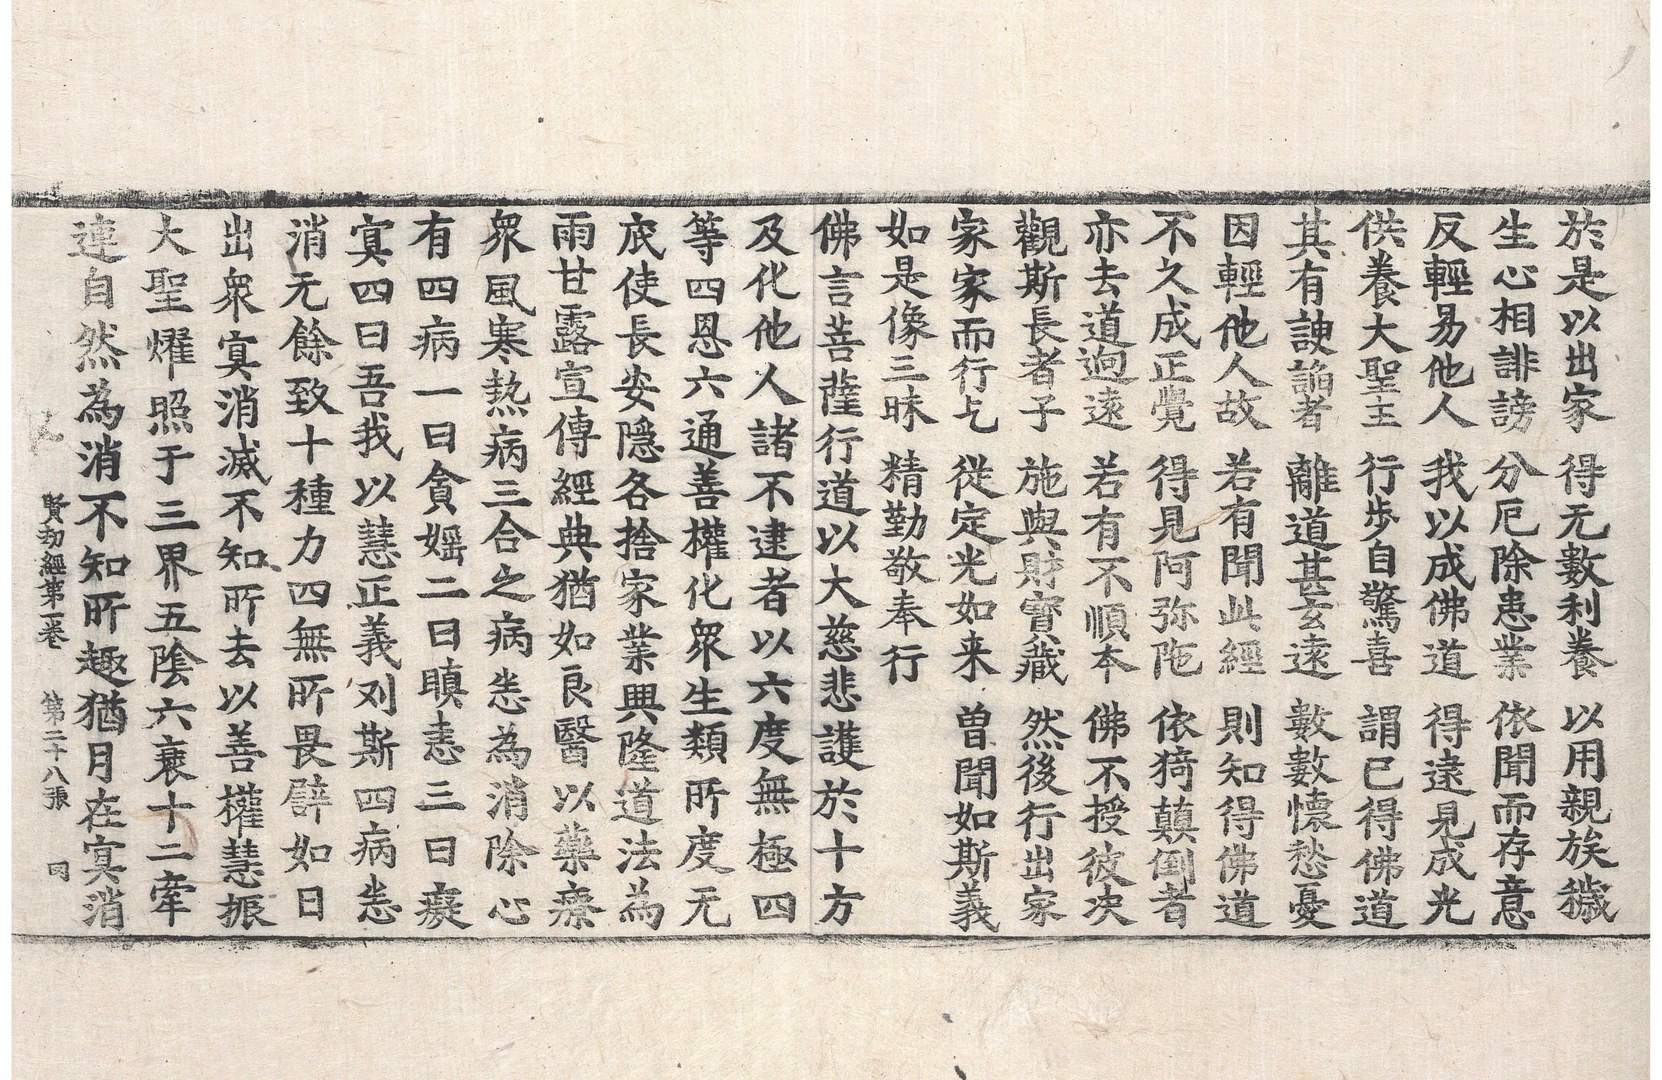 於是以出家　得无數利養　以用親族穢
生心相誹謗　分厄除恚業　依聞而存意
反輕易他人　我以成佛道　得遠見成光
供養大聖主　行步自驚喜　謂已得佛道
其有諛諂者　離道甚玄遠　數數懷愁憂
因輕他人故　若有聞此經　則知得佛道
不久成正覺　得見阿弥陁　依猗顛倒者
亦去道逈遠　若有不順本　佛不授彼决
觀斯長者子　施與財寳藏　然後行出家
家家而行乞　從定光如来　曽聞如斯義
如是像三昧　精勤敬奉行
佛言菩薩行道以大慈悲護於十方
及化他人諸不逮者以六度無極四
等四恩六通善權化衆生類所度无
底使長安隱各捨家業興隆道法為
雨甘露宣傳經典猶如良醫以藥療
衆風寒熱病三合之病恙為消除心
有四病一曰貪婬二曰瞋恚三曰癡
冥四曰吾我以慧正義刈斯四病恙
消无餘致十種力四無所畏譬如日
出衆冥消滅不知所去以善權慧振
大聖燿照于三界五陰六衰十二牽
連自然為消不知所趣猶月在冥消
賢劫經第一卷　第二十八張　同